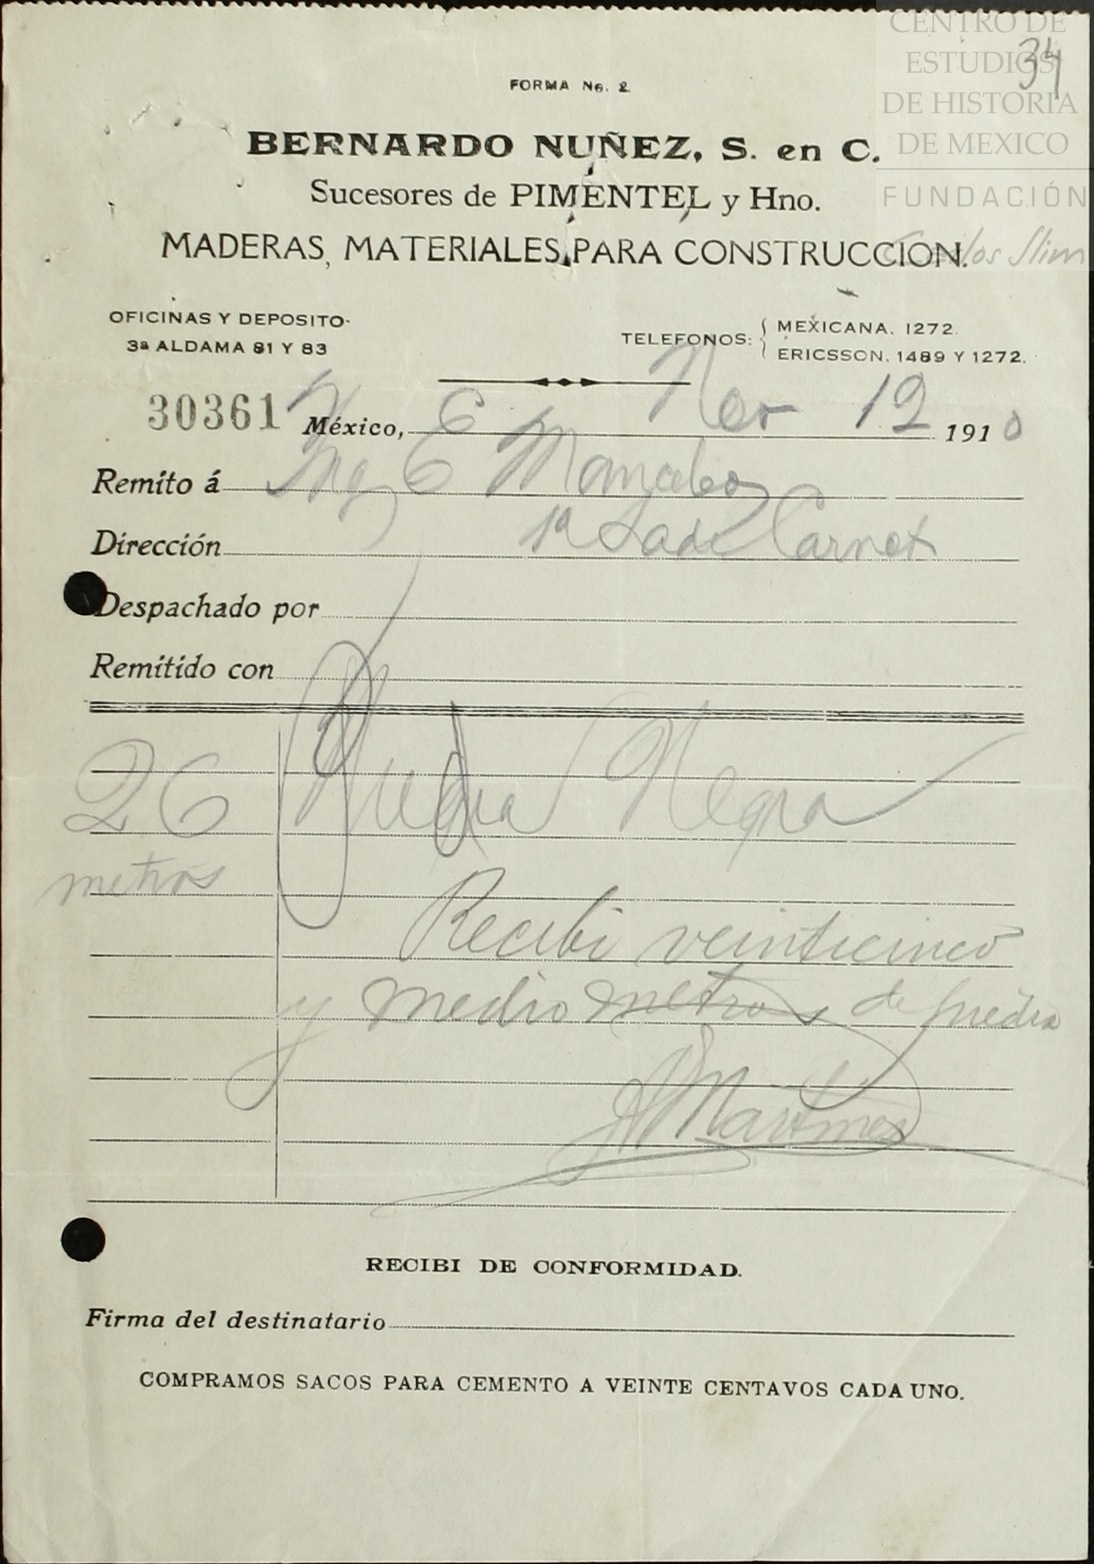 CENTRO DE
ESTUDIOS
DE HISTORIA
DE MEXICO
FUNDACIÓN
Carlos Slim
34
FORMA No. 2
BERNARDO NUÑEZ, S. en C.
Sucesores de PIMENTEL y Hno.
MADERAS, MATERIALES PARA CONSTRUCCION.
OFICINAS Y DEPOSITO
3ª ALDAMA 81 Y 83
TELEFONOS: MEXICANA. 1272.
ERICSSON. 1489 Y 1272.
30361 México, Nov 12 1910
Remito á Ing E
Dirección 1ª
Despachado por
Remitido con
26 Piedra Negra
metros
Recibi veinticinco
y medio metros de piedra
Martinez
RECIBI DE CONFORMIDAD.
Firma del destinatario
COMPRAMOS SACOS PARA CEMENTO A VEINTE CENTAVOS CADA UNO.